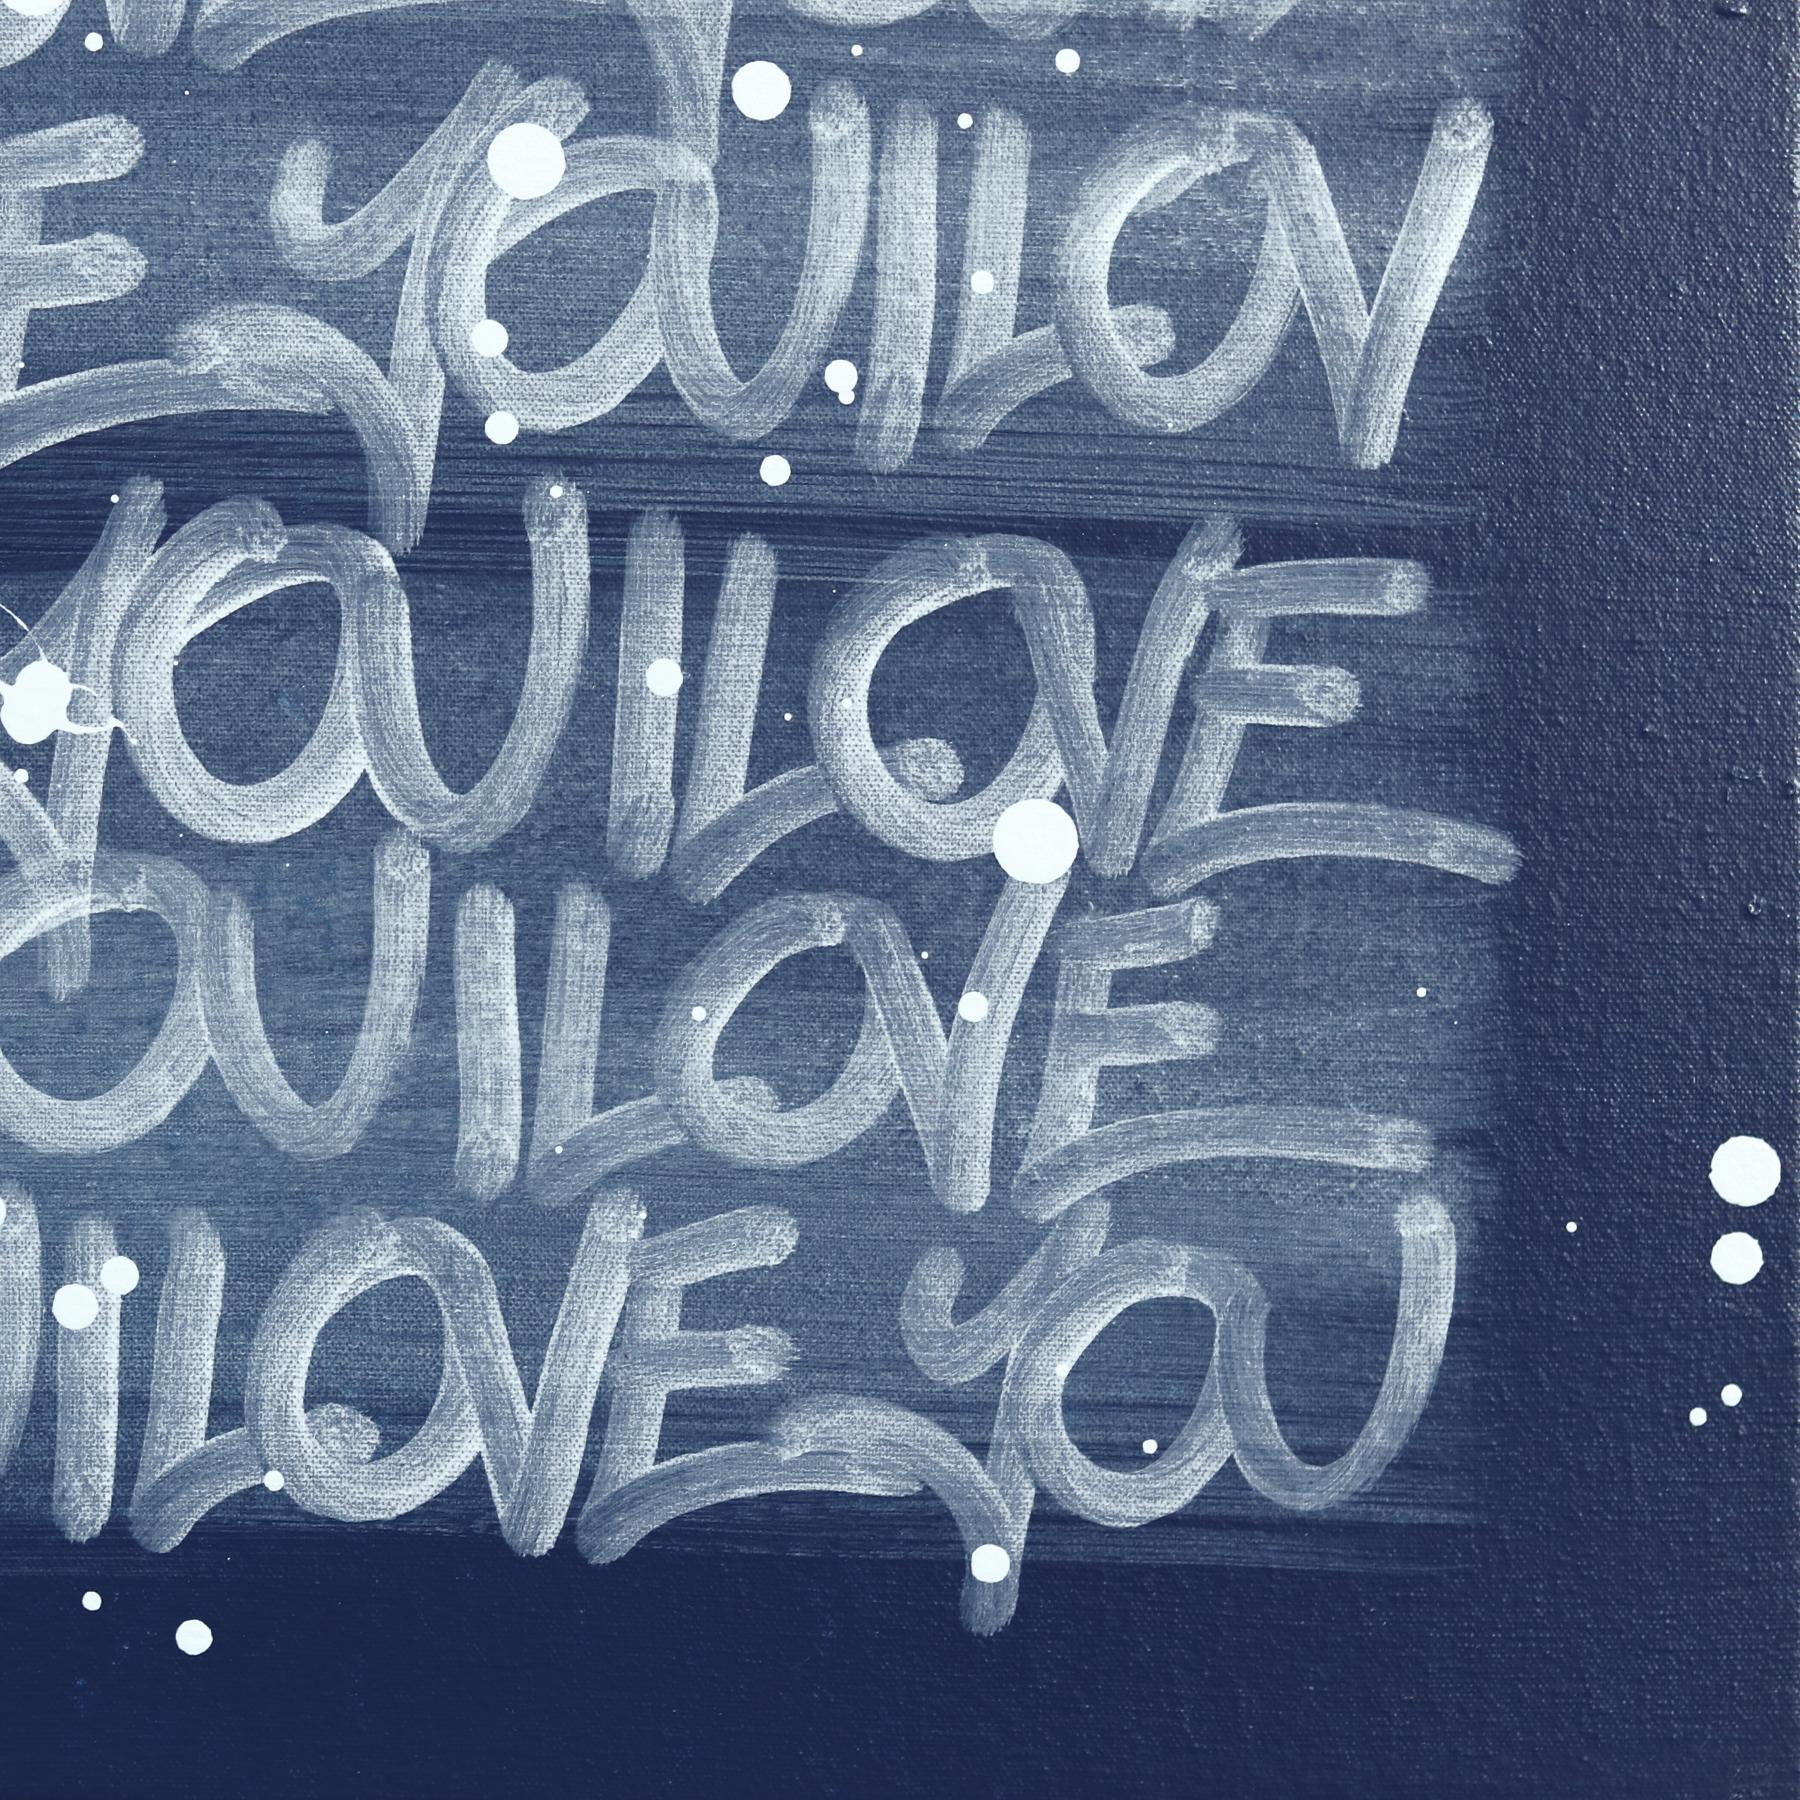 E YOU I LOV
YOU I LOVE
OU I LOVE
U I LOVE YOU